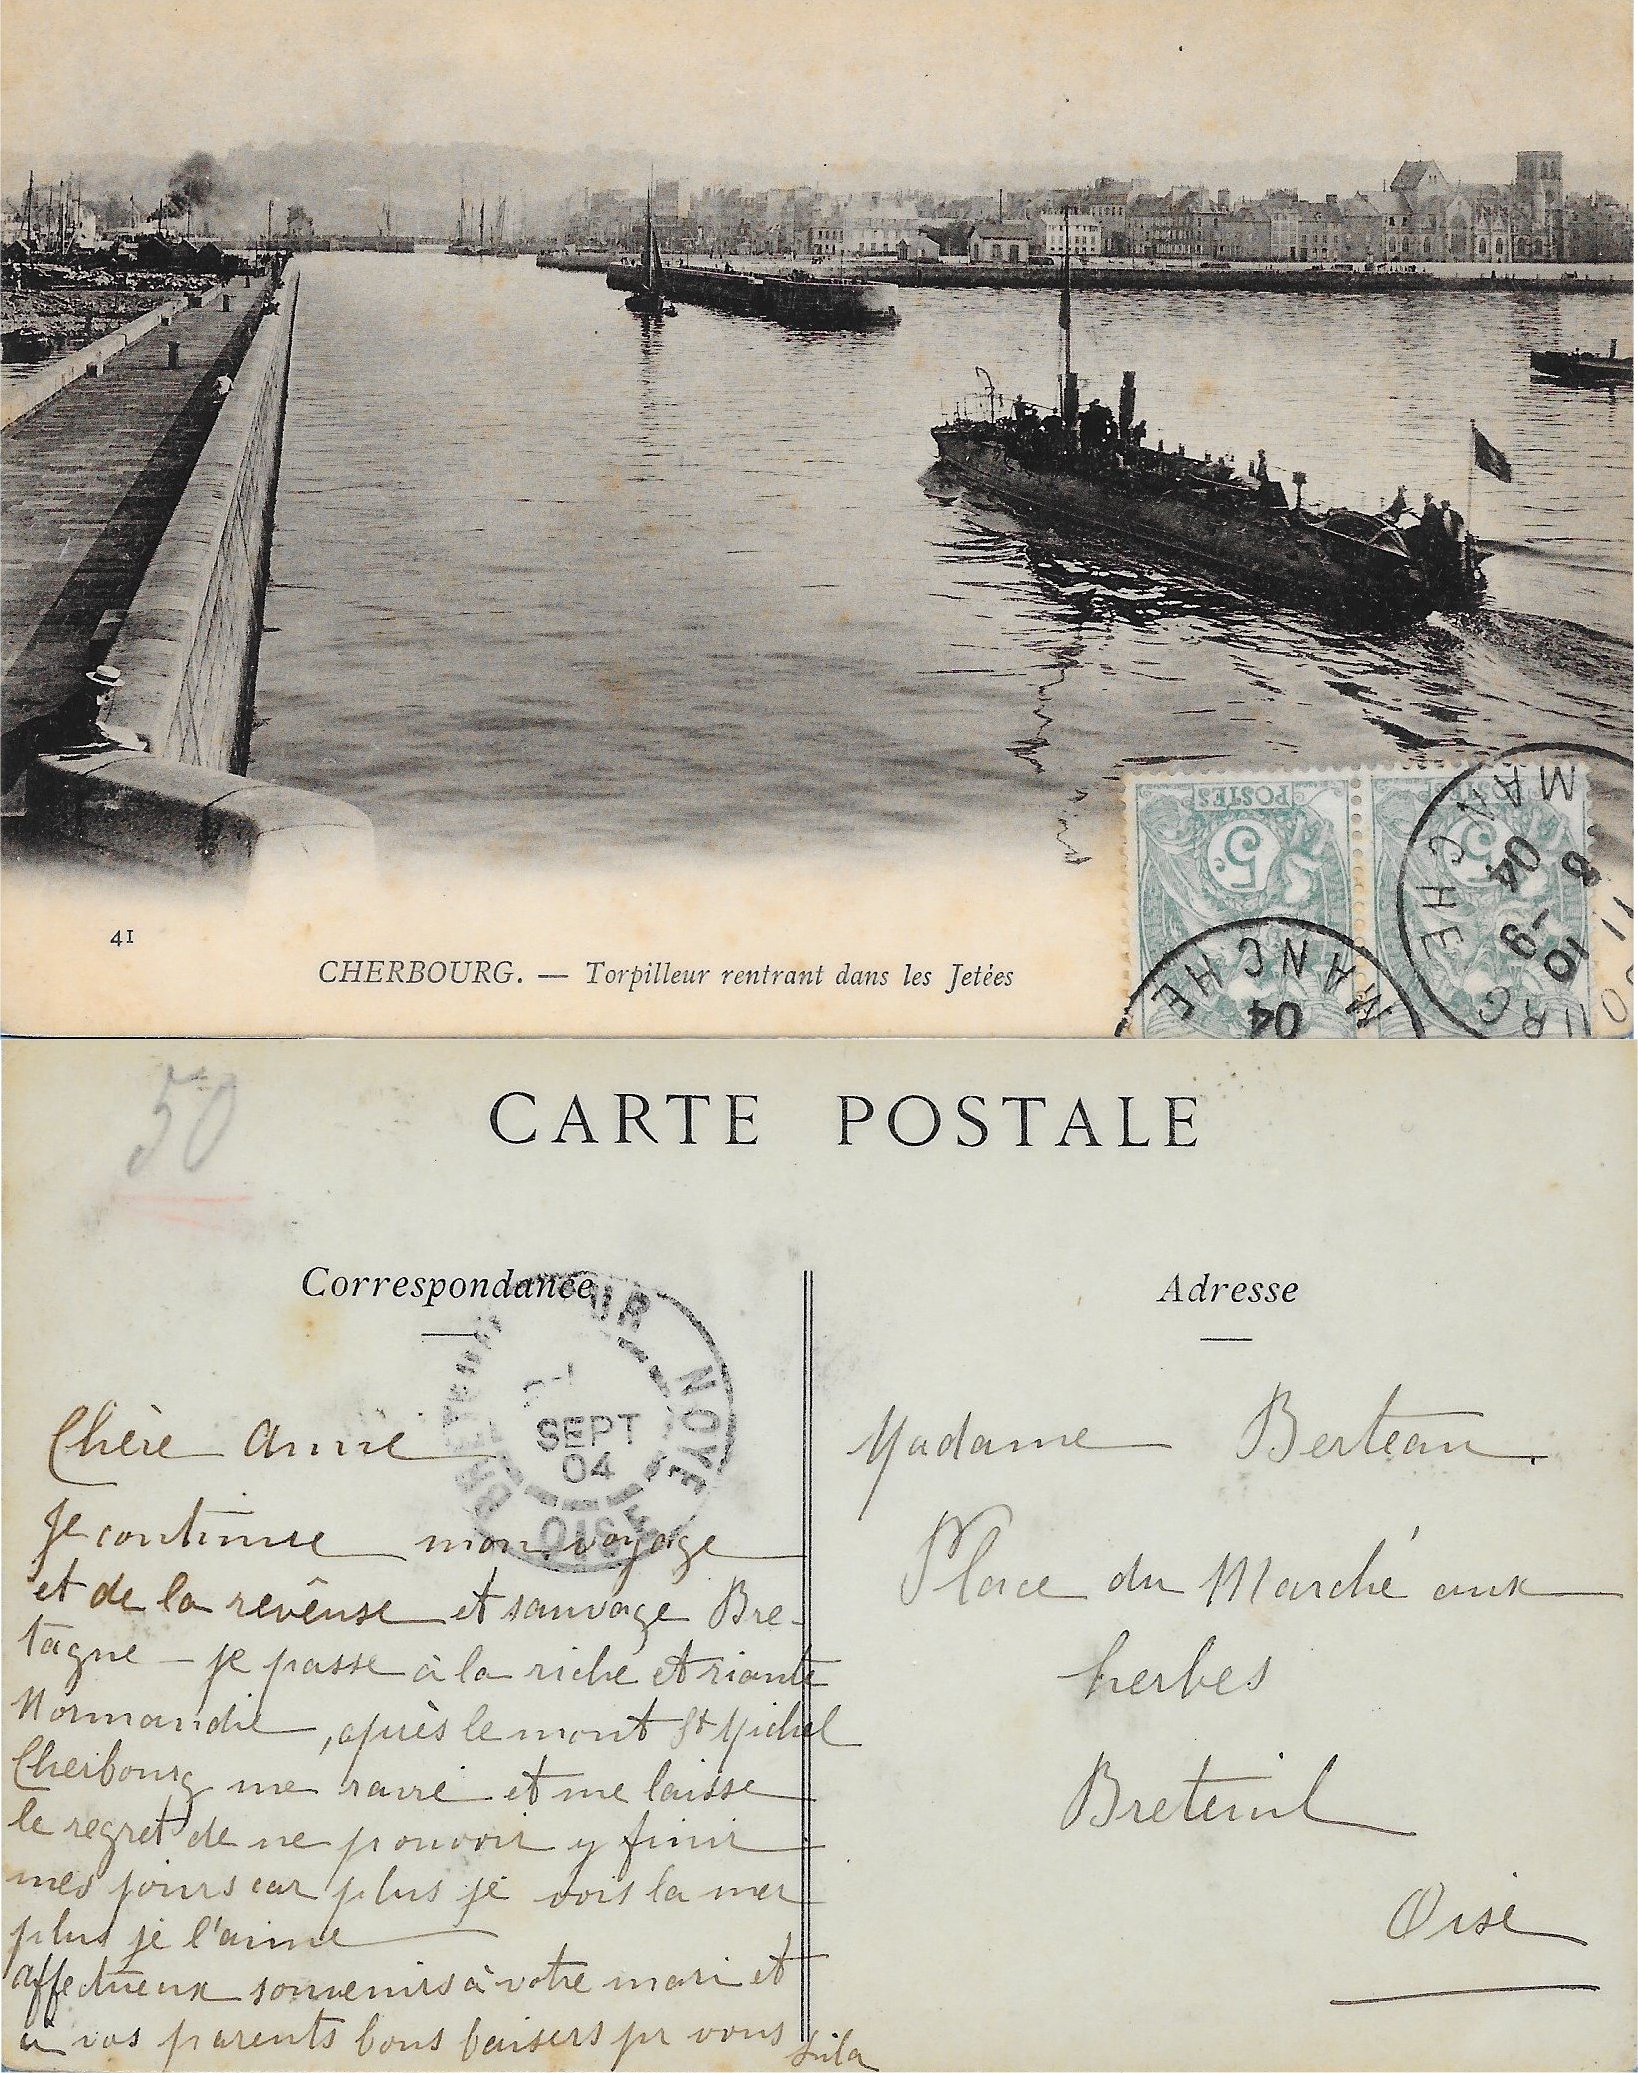 POSTES POSTES
5c 5c
MANCHE
10-9
04
MANCHE
04
41
CHERBOURG. — Torpilleur rentrant dans les Jetées
50
CARTE POSTALE
Correspondance
Adresse
SUR NOYE
SEPT
04
OISE
Chère Amie
Je continue mon voyage
et de la rêveuse et sauvage Bre-
tagne — je passe à la riche et riante
Normandie, après le mont St Michel
Cherbourg me ravie et me laisse
le regret de ne pouvoir y finir
mes jours car plus je vois la mer
plus je l'aime
affectueux souvenirs à votre mari et
à vos parents bons baisers pr vous
Madame Berteau
Place du Marché aux
herbes
Breteuil
Oise